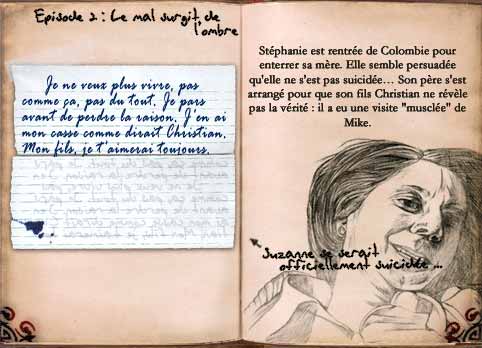 Episode 2 : Le mal surgit de
l'ombre
Je ne veux plus vivre, pas
comme ça, pas du tout. Je pars
avant de perdre la raison. J'en ai
mon casse comme dirait Christian.
Mon fils, je t'aimerai toujours.
Stéphanie est rentrée de Colombie pour
enterrer sa mère. Elle semble persuadée
qu'elle ne s'est pas suicidée... Son père s'est
arrangé pour que son fils Christian ne révèle
pas la vérité : il a eu une visite "musclée" de
Mike.
Suzanne se serait
officiellement suicidée ...